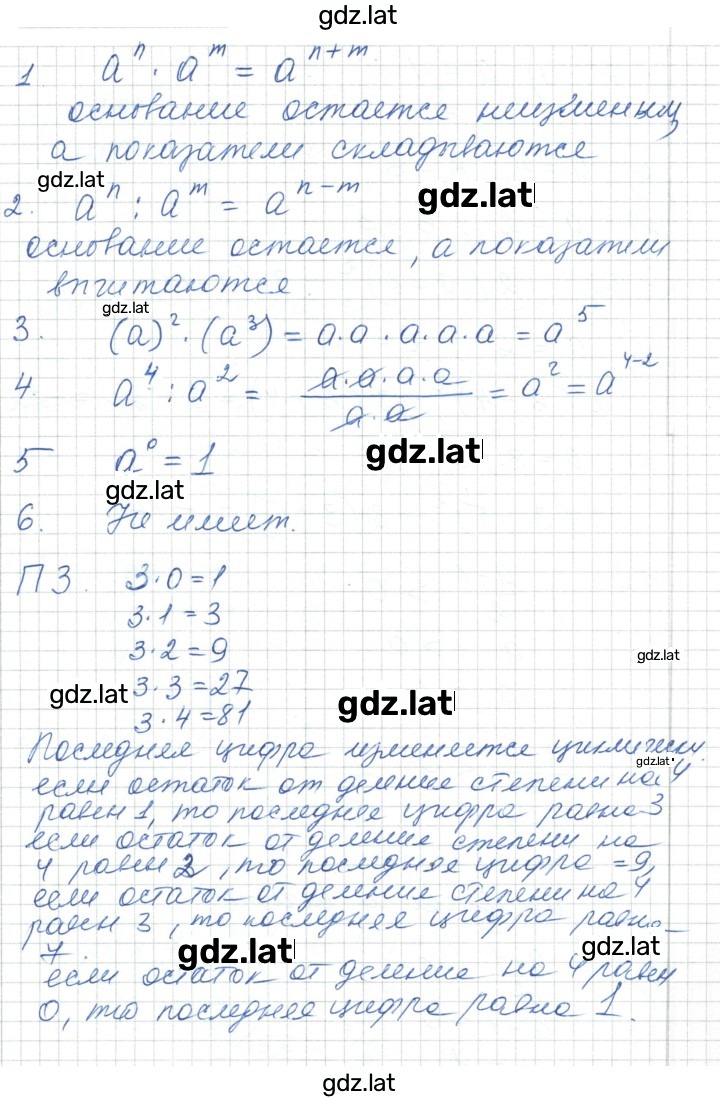 gdz.lat
1 aⁿ · aᵐ = aⁿ⁺ᵐ
основание остается неизменным,
а показатели складываются
gdz.lat
2. aⁿ : aᵐ = aⁿ⁻ᵐ gdz.lat
основание остается, а показатели
вычитаются
gdz.lat
3. (a)² · (a³) = a·a · a·a·a = a⁵
4. a⁴ : a² = a·a·a·a / a·a = a² = a⁴⁻²
5 a⁰ = 1 gdz.lat
gdz.lat
6. Не имеет.
ПЗ. 3·0=1
3·1=3
3·2=9
gdz.lat
gdz.lat 3·3=27 gdz.lat
3·4=81
Последняя цифра изменяется циклически.
gdz.lat
если остаток от деление степени на 4
равен 1, то последняя цифра равна 3
если остаток от деление степени на
4 равен 2, то последняя цифра =9,
если остаток от деление степени на 4
равен 3, то последняя цифра равна
7.
gdz.lat gdz.lat
если остаток от деление на 4 равен
0, то последняя цифра равна 1.
gdz.lat